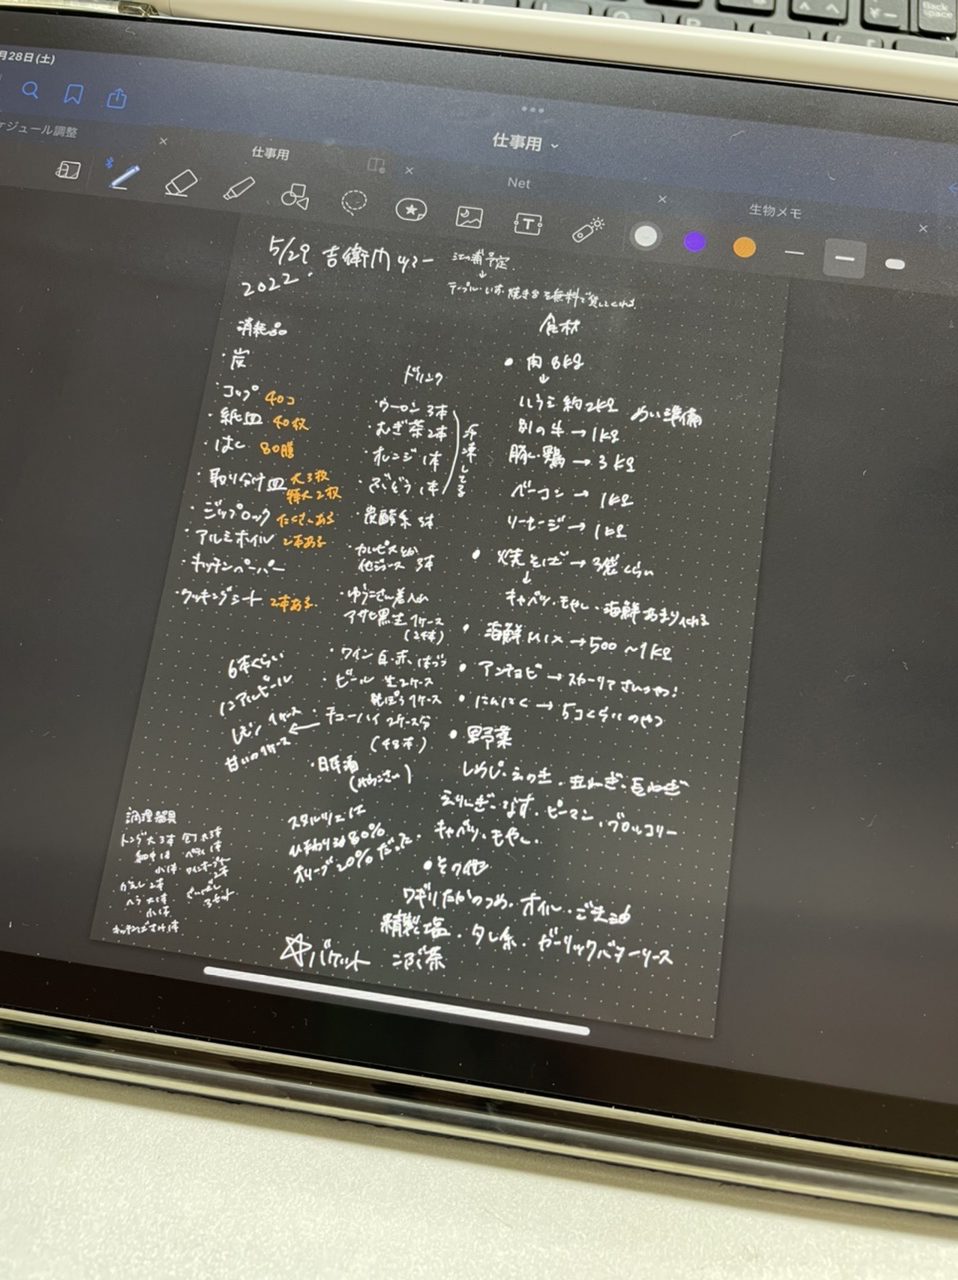 月28日(土)
仕事用
ケジュール調整
仕事用
Net
生物メモ
Back space
5/29
2022
テーブル・いす・焼き台を無料で貸してくれる
消耗品
・炭
・コップ 40コ
・紙皿 40枚
・はし 80膳
・取り分け皿 大3枚
特大2枚
・ジップロック たくさんある
・アルミホイル 2本ある
・キッチンペーパー
・クッキングシート 2本ある
ドリンク
・ウーロン 3本
・むぎ茶 2本
・オレンジ 1本
・ぶどう 1本
冷凍してる
・炭酸系 3本
・カルピスとか
他ジュース 3本
・ゆうこさん差入れ
アサヒ黒生 1ケース
(24本)
・ワイン 白・赤 1本づつ
・ビール 生2ケース
1ケース
・チューハイ 2ケース分
(48本)
・日本酒
6本くらい
ノンアルビール
レモン 1ケース
甘いの 1ケース
食材
・肉 8kg
↓
ハラミ 約2kg めい準備
別の牛→1kg
豚・鶏→3kg
ベーコン→1kg
ソーセージ→1kg
・焼そば→3袋くらい
↓
キャベツ・もやし・海鮮あまり入れる
・海鮮MIX→500~1kg
・アンチョビ→
・にんにく→5コくらいのやつ
・野菜
しめじ・えのき・玉ねぎ・長ねぎ
えりんぎ・なす・ピーマン・ブロッコリー
キャベツ・もやし
・その他
ワギリたかのつめ・オイル・ごま油
精製塩・タレ系・ガーリックバターソース
ひまわり油80%
オリーブ20%だった
☆バケット こぶ茶
調理器具
トング大3本